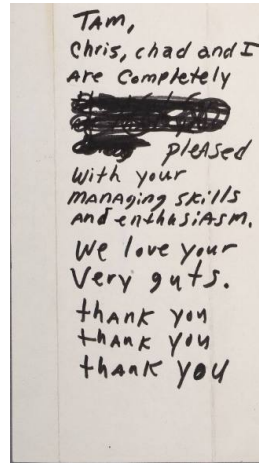 TAM,
Chris, chad and I
Are Completely
pleAsed
With your
mAnAging skills
And enthusiAsm.
We love your
Very guts.
thank you
thank you
thank you